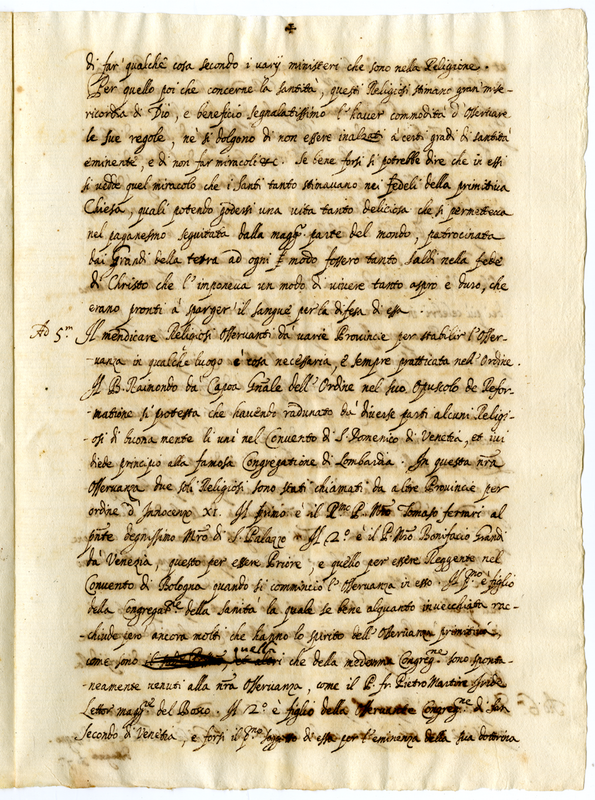 di far qualche cosa secondo i varij ministeri che sono nella Religione.
Per quello poi che concerne la santità, questi Religiosi stimano gran mise-
ricordia di Dio, e beneficio segnalatissimo l'haver commodità d'Osservare
le sue regole, nè si dolgono di non essere inalzati à certi gradi di santità
eminente, e di non far miracoli &c. Se bene forsi si potrebbe dire che in essi
si vedde quel miracolo che i Santi tanto stimavano nei fedeli della primitiva
Chiesa, quali potendo godersi una vita tanto deliciosa che si permetteva
nel paganesmo seguitata dalla magg.r parte del mondo, patrocinata
dai Grandi della terra ad ogni modo fossero tanto saldi nella fede
di Christo che l'imponeva un modo di vivere tanto aspro e duro, che
erano pronti à sparger il sangue per la difesa di essa
Ad 5.m Il mendicare Religiosi Osservanti da varie Provincie per stabilir l'Osser-
-vanza in qualche luogo è cosa necessaria, e sempre pratticata nell'Ordine.
Il B. Raimondo da Capoa Gnãle dell'Ordine nel suo Opuscolo de Refor-
-matione si protesta che havendo radunato da diverse parti alcuni Religi-
-osi di buona mente li unì nel Convento di S. Domenico di Venetia, et ivi
diede principio alla famosa Congregatione di Lombardia. In questa nrã
Osservanza due soli Religiosi sono stati chiamati da altre Provincie per
ordine d'Innocenzo XI. Il primo è il R.mo P. Mrõ Tomaso ferrari al
pnte degnissimo Mrõ di S. Palazzo. Il 2.o è il P. Mrõ Bonifacio Grandi
da Venezia, questo per essere Priore, e quello per essere Reggente nel
Convento di Bologna quando si comminciò l'Osservanza in esso. Il p.mo è figlio
della Congregat.ne della Sanità la quale se bene alquanto invecchiata rac-
-chiude però ancora molti che hanno lo spirito dell'Osservanza primitiva,
come sono quelli che della medema Congreg.ne sono sponta-
-neamente venuti alla nrã Osservanza, come il P. fr. Pietro Martire
Lettor magg.re del Bosco. Il 2.o è figlio della Osservante Congreg.ne di San
Secondo di Venetia, e forsi il p.mo soggetto di essa per l'eminenza della sua dottrina